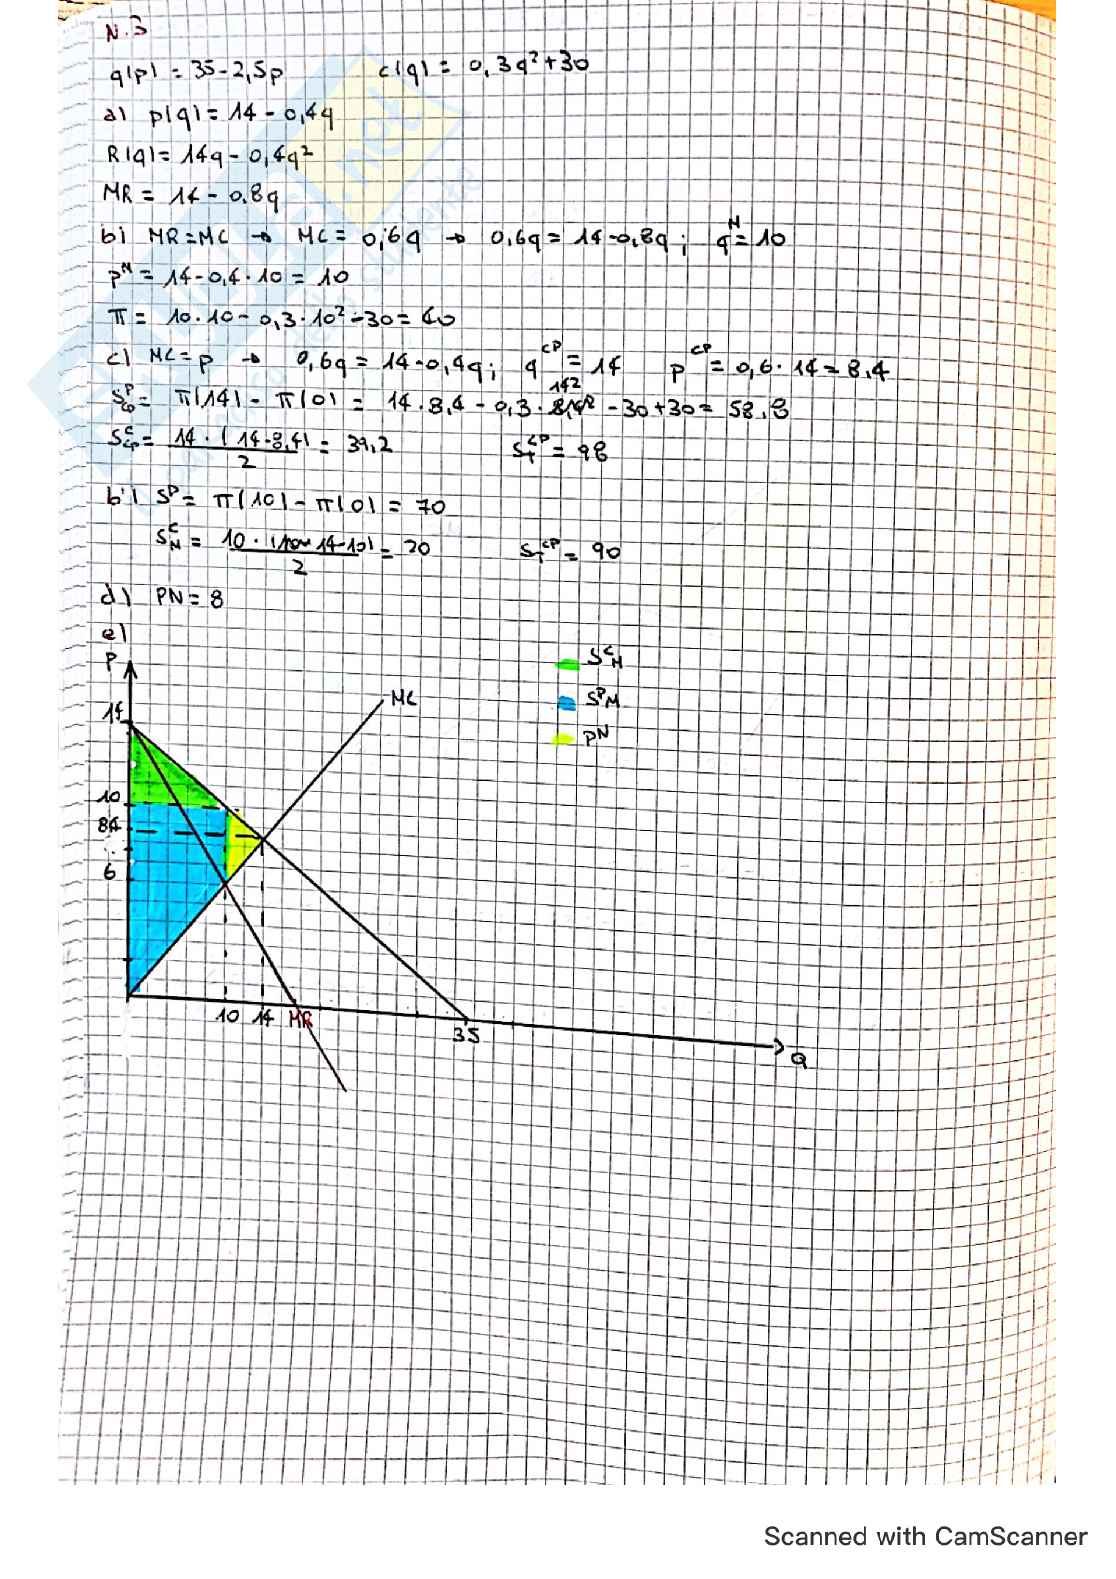 N.3
q(p) = 35-2,5p c(q) = 0,3q²+30
a) p(q) = 14 - 0,4q
R(q) = 14q - 0,4q²
MR = 14 - 0.8q
b) MR=MC → MC = 0,6q → 0,6q = 14-0,8q ; qᴹ = 10
pᴹ = 14-0,4·10 = 10
π = 10·10 - 0,3·10² - 30 = 40
c) MC = p → 0,6q = 14-0,4q ; q^CP = 14 p^CP = 0,6·14 = 8.4
S^P_CP = π(14) - π(0) = 14·8,4 - 0,3·14² - 30+30 = 58.8
S^C_CP = 14·(14-8,4)/2 = 39,2 S_T^CP = 98
b') S^P = π(10) - π(0) = 70
S^C_M = 10·(14-10)/2 = 20 S_T^CP = 90
d) PN = 8
e)
P
MC
S^C_M
S^P M
PN
14
10
84
6
10 14 MR
35
Q
Scanned with CamScanner